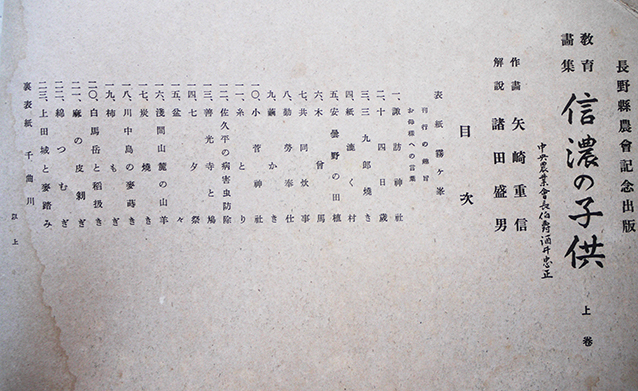 長野縣農會記念出版
教育畫集 信濃の子供 上卷
中央農業會長伯爵酒井忠正
作畫 矢崎重信
解説 諸田盛男
目次
表紙 霧ヶ峯
刊行の趣旨
お母樣への言葉
一、諏訪神社
二、十四日歳
三、三九郎燒き
四、紙漉く村
五、安曇野の田植
六、木曾馬
七、共同炊事
八、勤勞奉仕
九、繭かき
一〇、小菅神社
一一、糸とり
一二、佐久平の病害虫防除
一三、善光寺と鳩
一四、七夕祭
一五、盆々
一六、淺間山麓の山羊
一七、炭燒き
一八、川中島の麥蒔き
一九、柿もぎ
二〇、白馬岳と稻扱き
二一、麻の皮剝ぎ
二二、綿つむぎ
二三、上田城と麥踏み
裏表紙 千曲川
以上